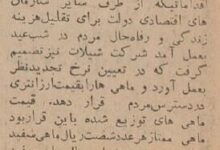 اقداماتیکه از طرف سایر سازمان
های اقتصادی دولت برای تقلیل هزینه
زندگی و رفاه حال مردم در شب عید
بعمل آمد شرکت شیلات نیز تصمیم
گرفت که در تعیین نرخ تجدیدنظر
بعمل آورد و ماهی هارا بقیمت ارزانتری
در دسترس مردم قرار دهد. قیمت
ماهی های توزیع شده باین قرار بود
ماهی ممتاز هر عدد شصت ریال ماهی سفید